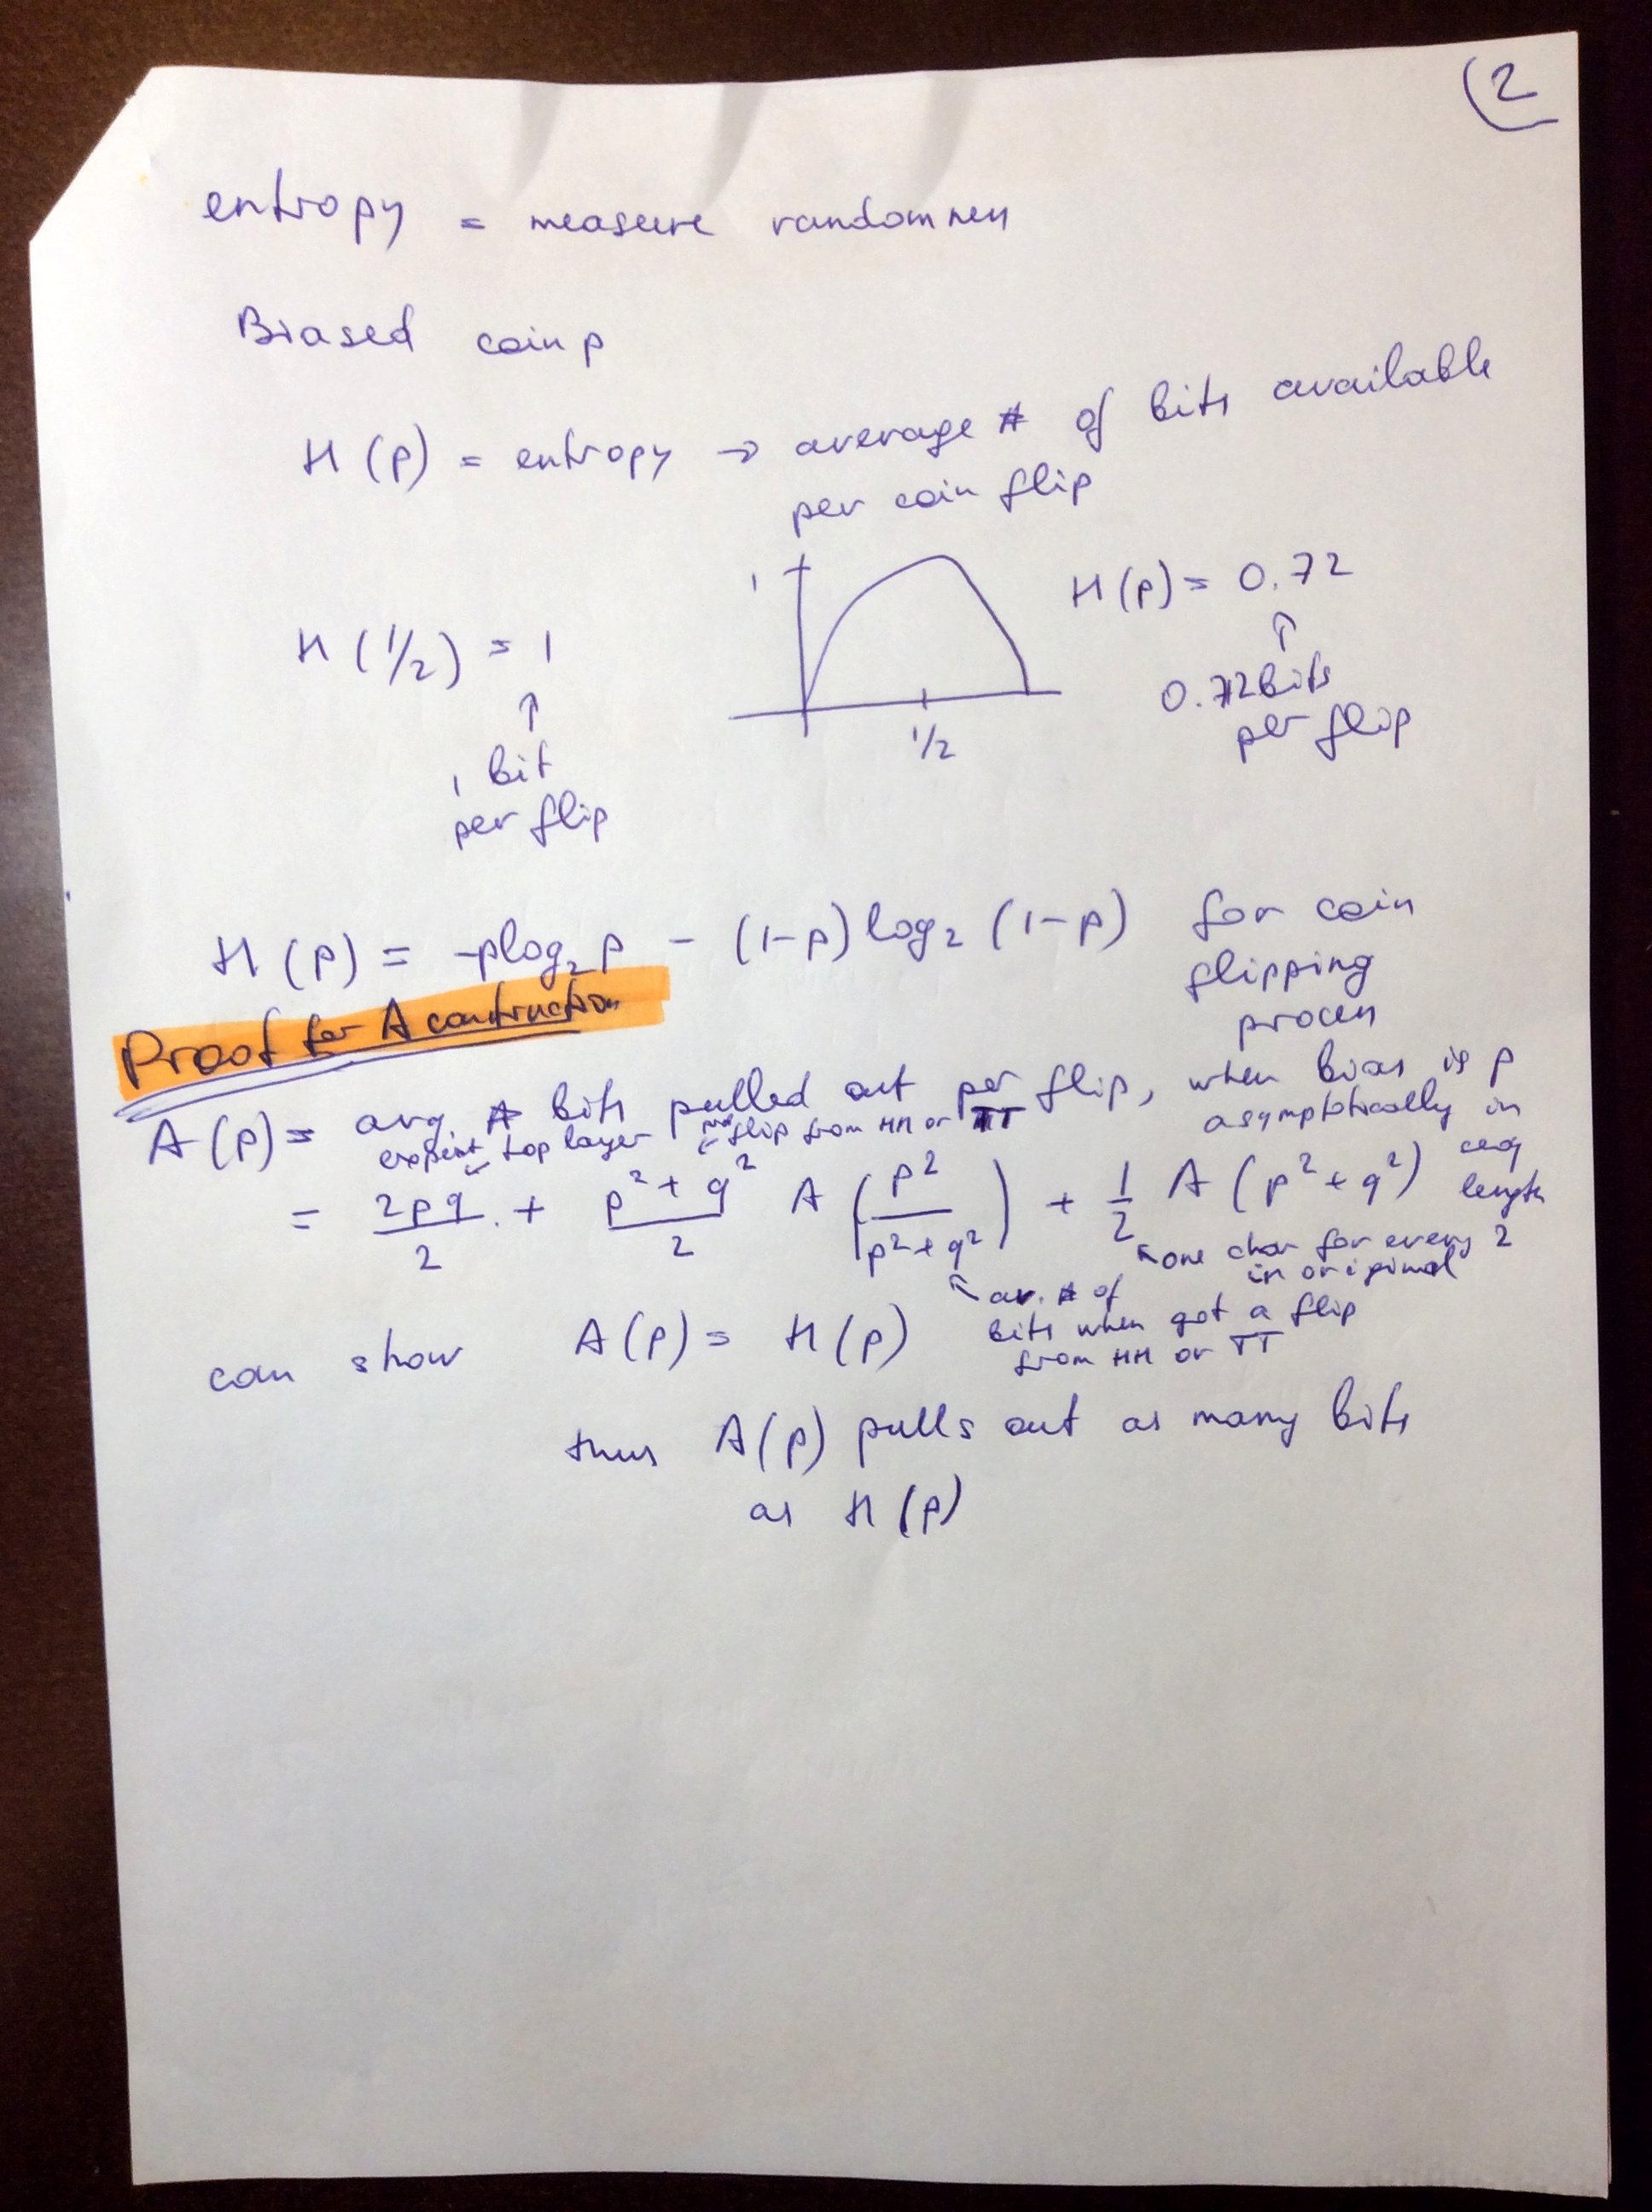 2
entropy = measure randomness
Biased coin p
H(p) = entropy → average # of bits available
per coin flip
1
1/2
H(1/2) = 1
↑
1 bit
per flip
H(p) = 0.72
↑
0.72 bits
per flip
H(p) = -plog₂p - (1-p)log₂(1-p) for coin
flipping
process
Proof for A construction
A(p) = avg. # bits pulled out per flip, when bias is p
asymptotically in
seq
length
top layer
flip from HH or TT
= 2pq/2 + (p²+q²)/2 A(p²/(p²+q²)) + 1/2 A(p²+q²)
↖ one char for every 2
in original
↖ av. # of
bits when got a flip
from HH or TT
can show A(p) = H(p)
thus A(p) pulls out as many bits
as H(p)